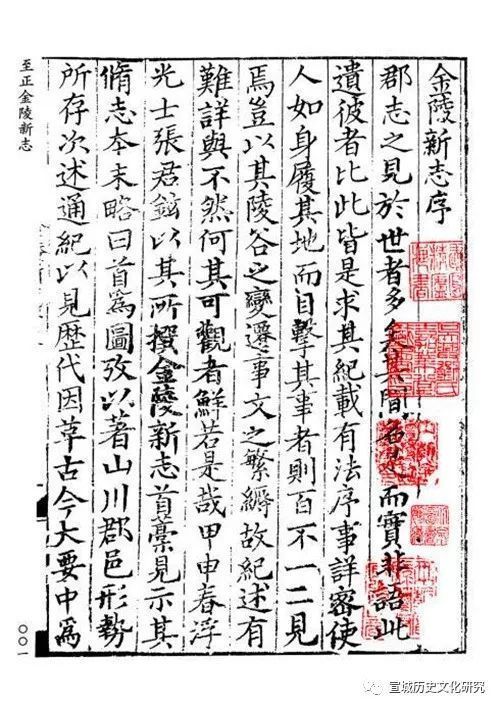 金陵新志序
郡志之見於世者多矣其間名是而實非語此
遺彼者比比皆是求其紀載有法序事詳密使
人如身履其地而目擊其事者則百不一二見
焉豈以其陵谷之變遷事文之繁縟故紀述有
難詳與不然何其可觀者鮮若是哉甲申春浮
光士張君鉉以其所撰金陵新志首藁見示其
脩志本末略曰首為圖攷以著山川郡邑形勢
所存次述通紀以見歷代因革古今大要中為
至正金陵新志
〇〇一
宣城历史文化研究